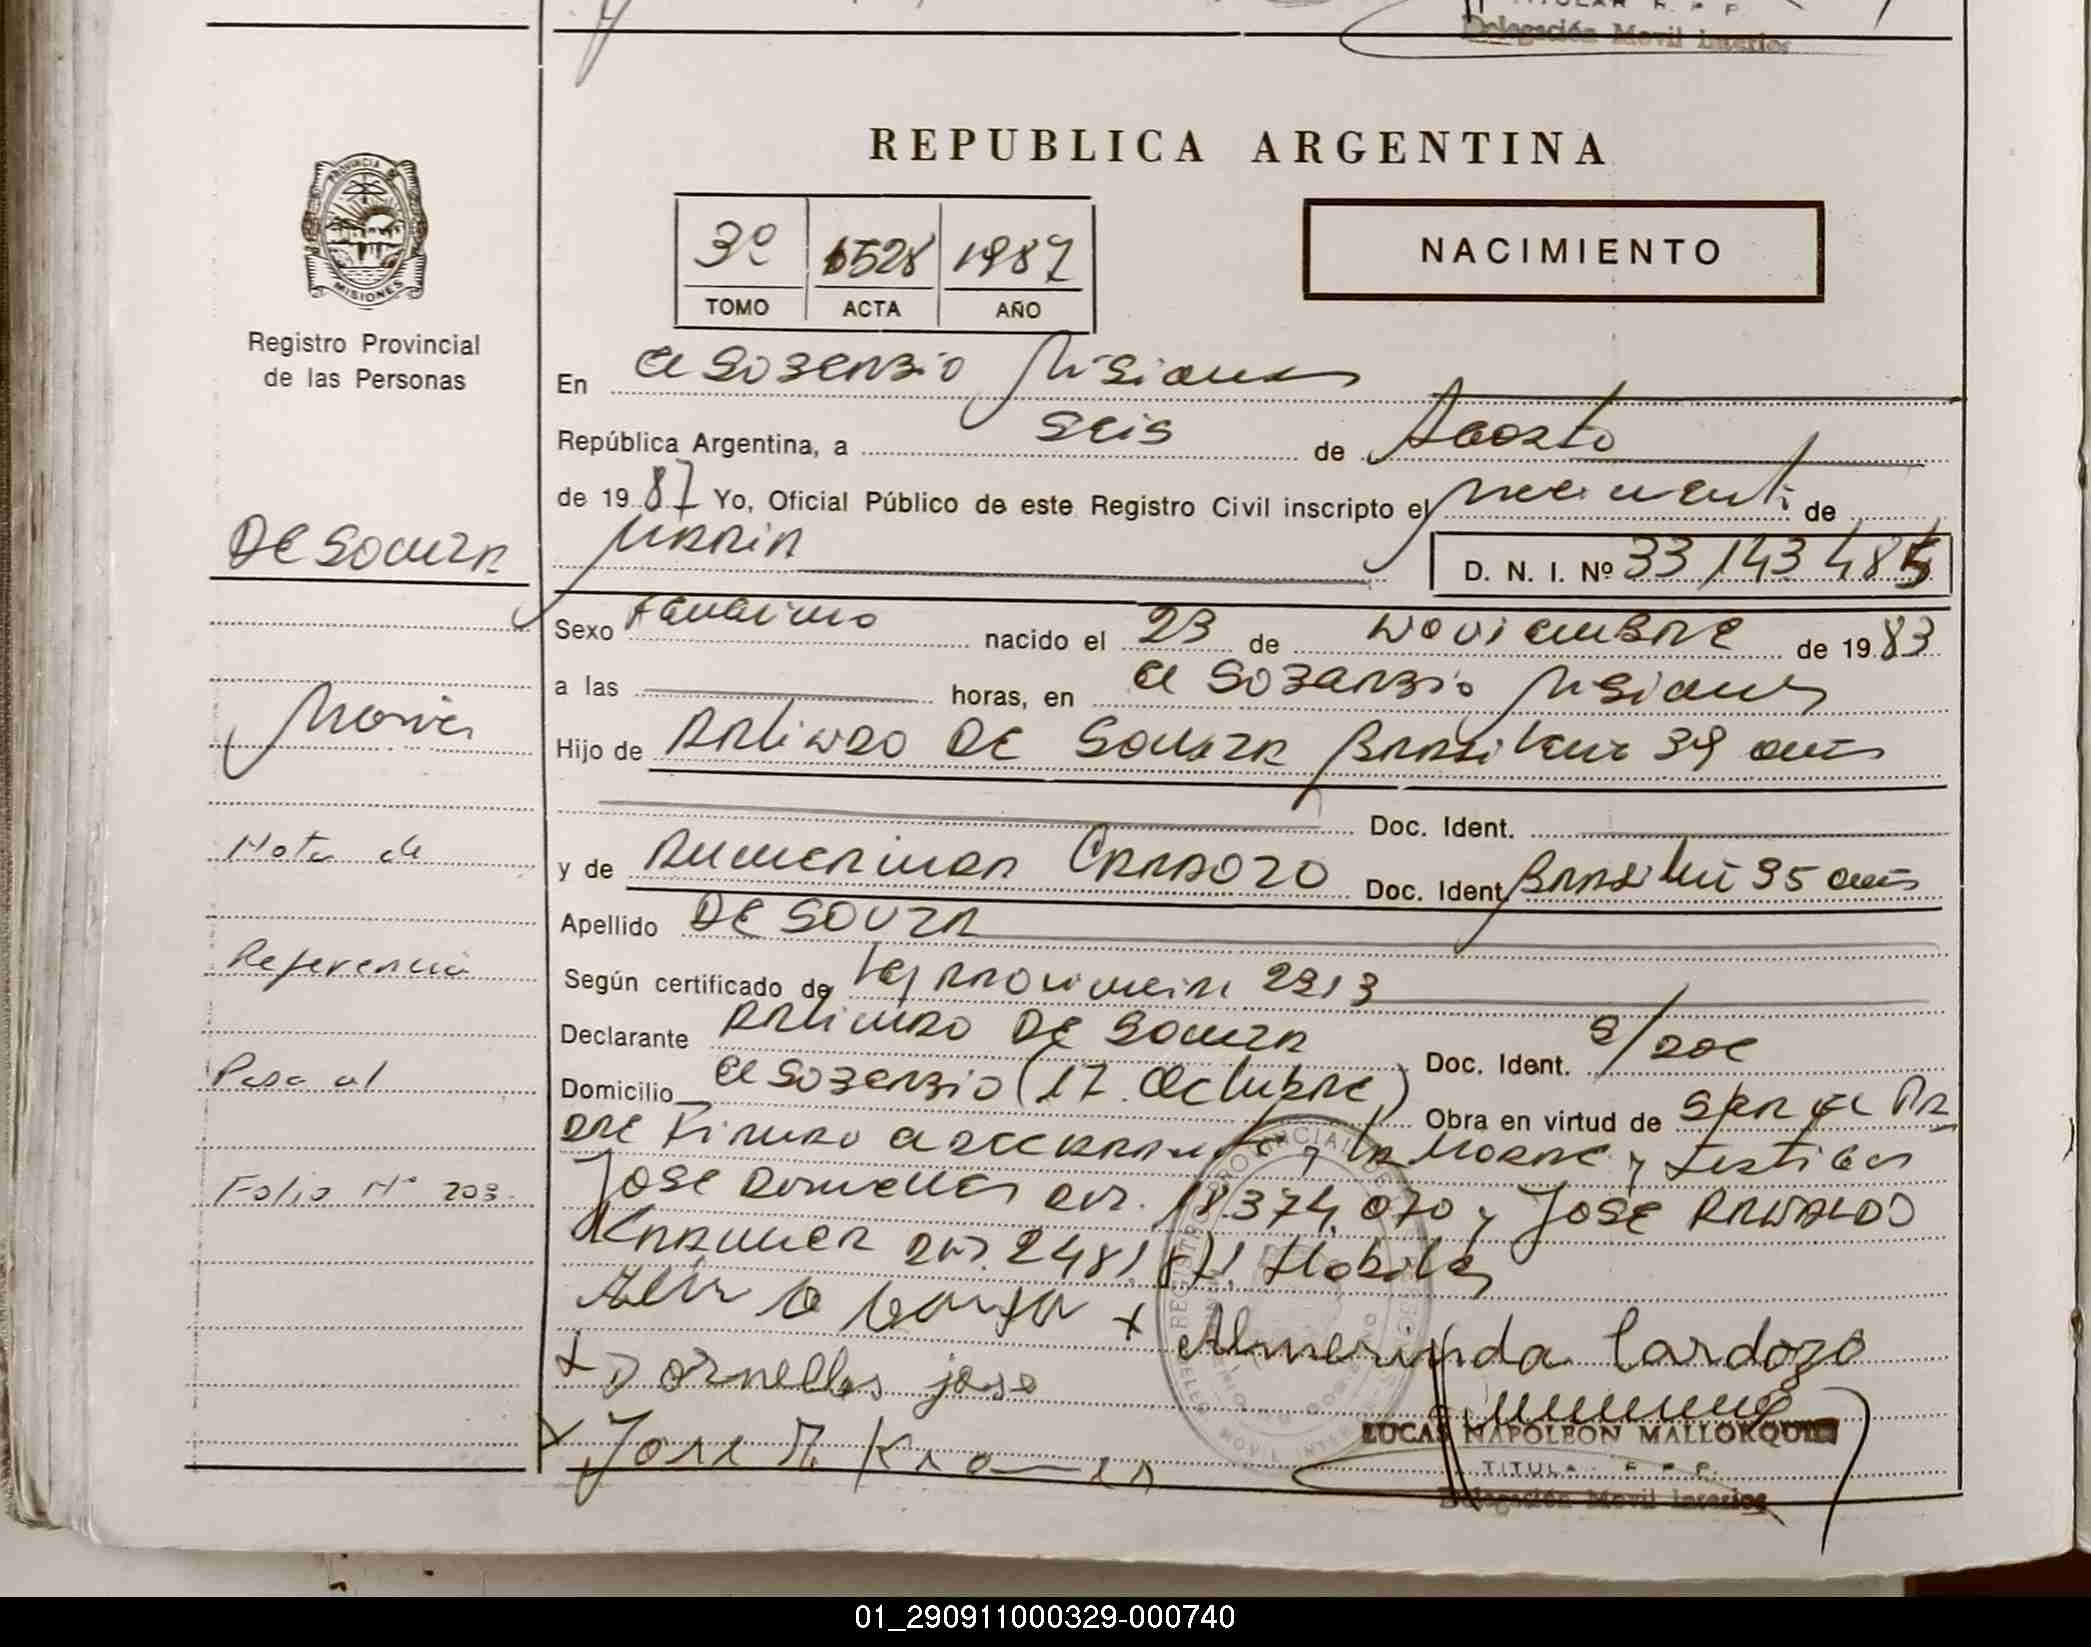 TITULAR R. P. P.
Delegación Movil Interior
REPUBLICA ARGENTINA
PROVINCIA DE
MISIONES
3º 1528 1987
TOMO ACTA AÑO
NACIMIENTO
Registro Provincial
de las Personas
En El Soberbio Misiones
República Argentina, a seis de Agosto
de 1987 Yo, Oficial Público de este Registro Civil inscripto el nacimiento de
DE SOUZA
MARIA
D. N. I. Nº 33 143 485
Sexo Femenino nacido el 23 de Noviembre de 1983
a las horas, en El Soberbio Misiones
Maria
Hijo de ARLINDO DE SOUZA Brasilero 39 años
Doc. Ident.
Nota de
y de ALMERINDA CARDOZO Doc. Ident. Brasilera 35 años
Apellido DE SOUZA
Referencia
Según certificado de Ley Provincial 2213
Declarante ARLINDO DE SOUZA Doc. Ident. S/DOC
Pasa al
Domicilio El Soberbio (17 Octubre) Obra en virtud de SER EL PA
DRE Firman el declarante, la Madre y testigos
Folio Nº 203.
JOSE Dornelles DNI. 18.374.070 y JOSE
Kramer DNI. 2481. Habiles
x Almerinda Cardozo
x Dornelles jose
x Jose Kramer
LUCAS NAPOLEON MALLORQUIN
TITULAR R. P. P.
Delegación Movil Interior
01_290911000329-000740